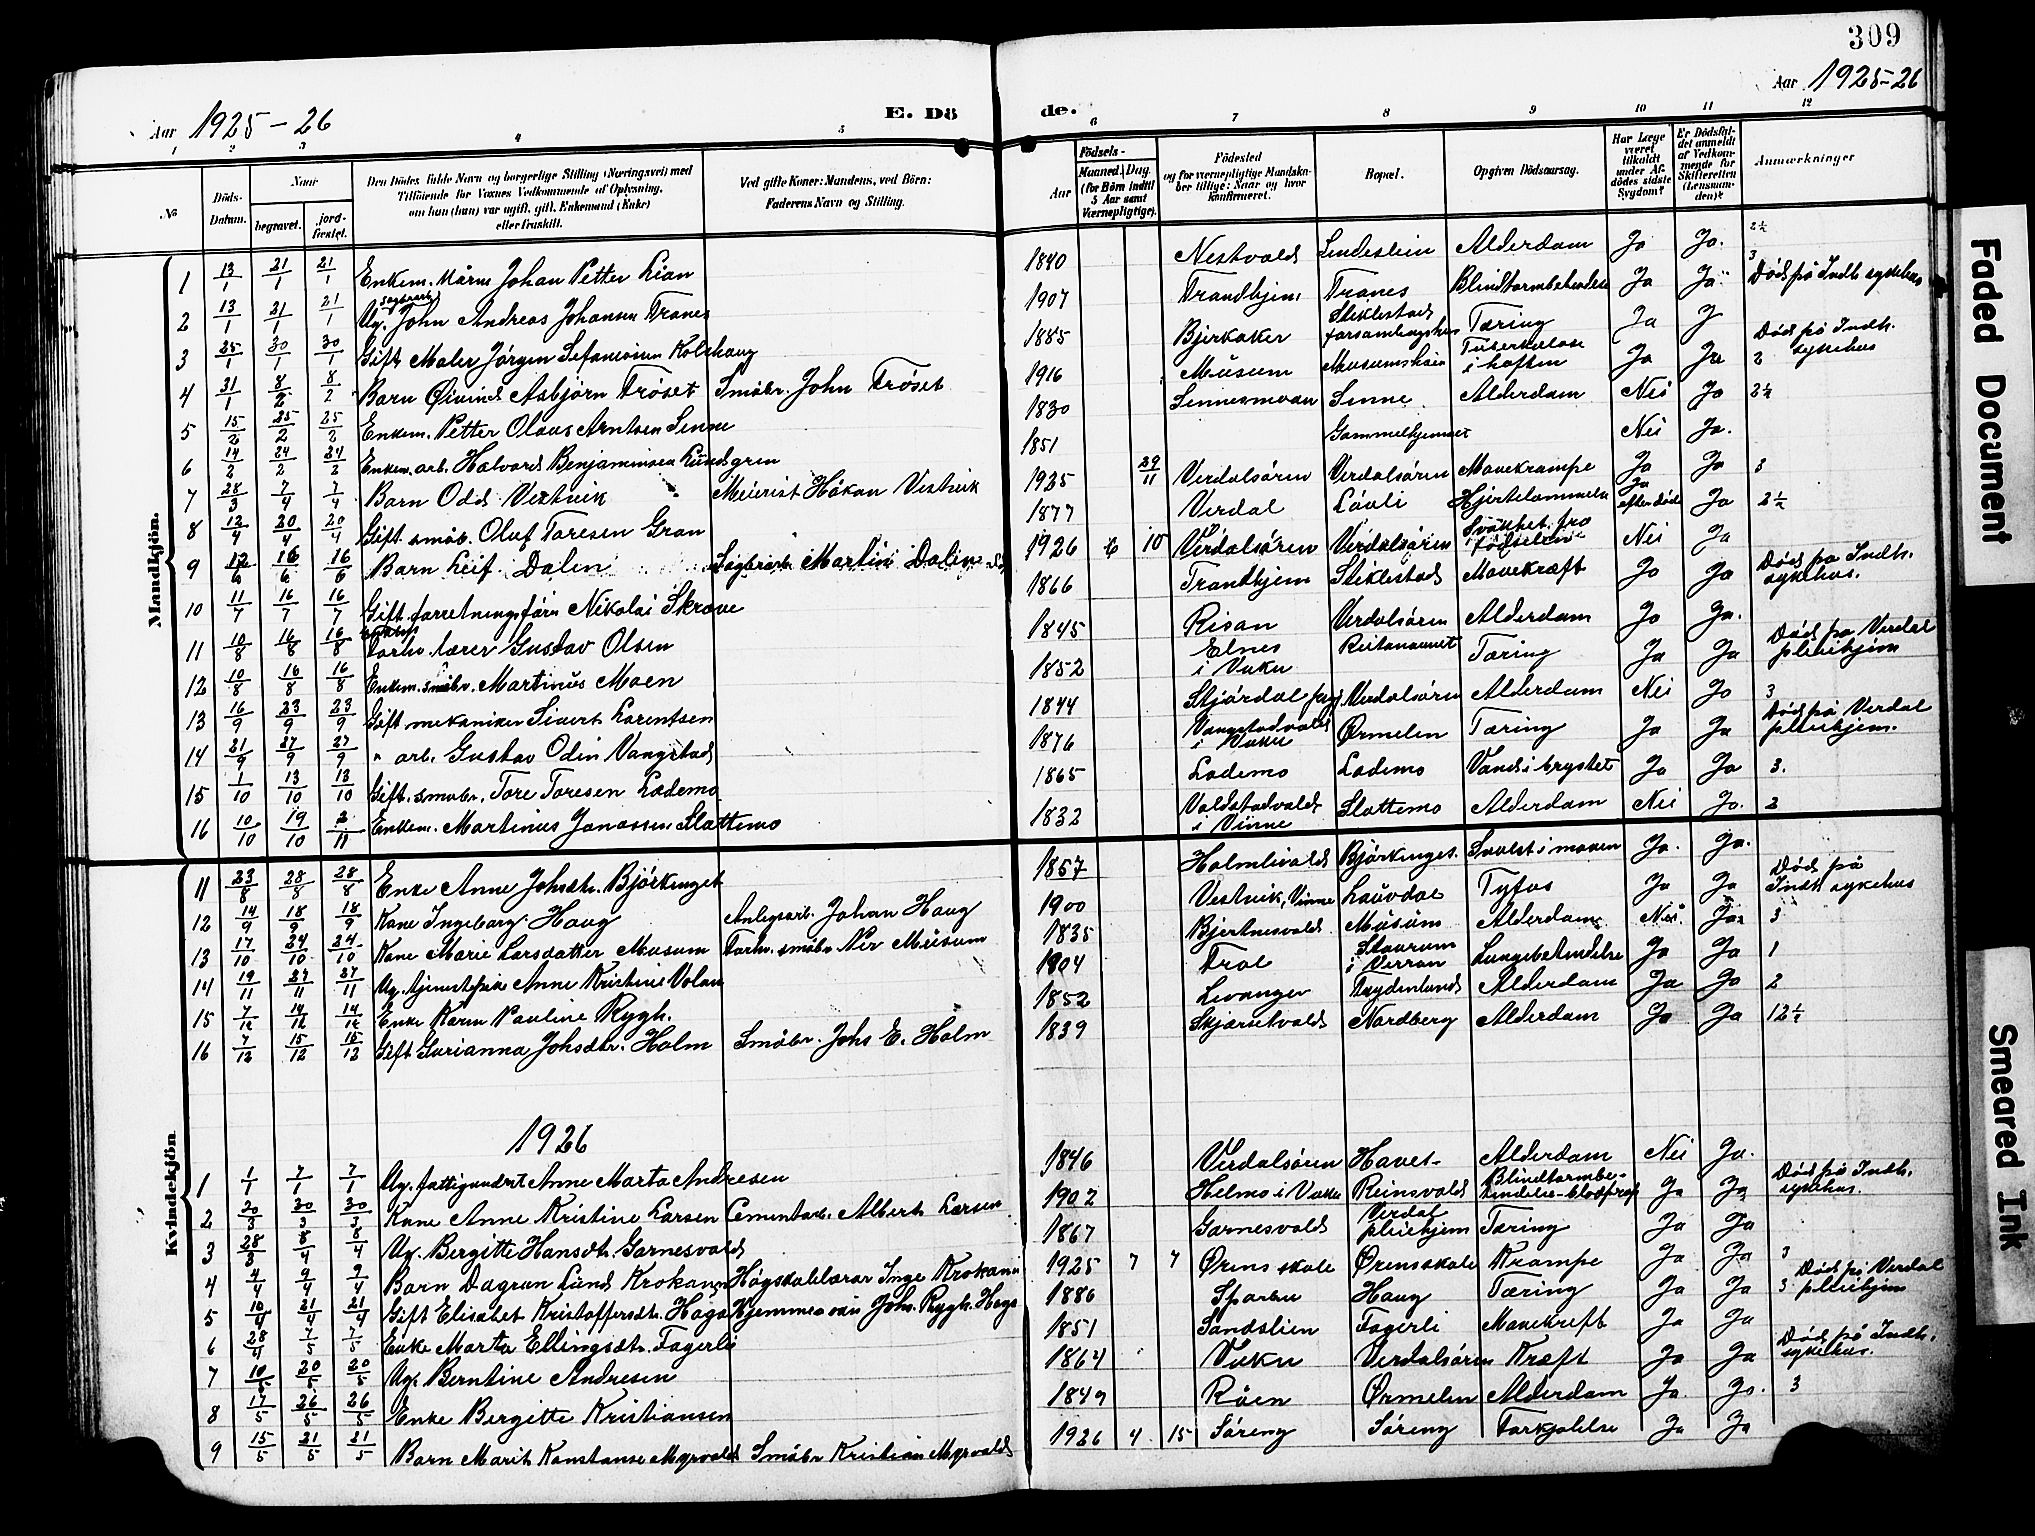 309
Aar 1925-26 E. Dö
de. Aar 1925-26
1 2 3 4 5 6 7 8 9 10 11 12
№ Döds-Datum. Naar begravet. jord-fæstet. Den Dödes fulde Navn og borgerlige Stilling (Næringsvei) med Tilföiende for Voxnes Vedkommende af Oplysning, om han (hun) var ugift, gift, Enkemand (Enke) eller fraskilt. Ved gifte Koner: Mandens, ved Börn: Faderens Navn og Stilling. Aar Födsels- Maaned. Dag. (for Börn indtil 5 Aar samt Værnepligtige). Födested og for værnepligtige Mandskaber tillige: Naar og hvor konfirmeret. Bopæl. Opgiven Dödsaarsag. Har Læge været tilkaldt under Afdödes sidste Sygdom? Er Dödsfaldet anmeldt af Vedkommende for Skifteretten (Lensmanden)? Anmærkninger
Mandkjön.
1 13/1 21/1 21/1 Enkem. Johan Petter Lian 1840 Nestvold Alderdom Ja Ja. 2½
2 13/1 21/1 21/1 Ug. sagbrarb. John Andreas Johansen Trones 1907 Trondhjem Trones Ja Ja 3 Död på Indh. sykehus
3 25/1 30/1 30/1 Gift Maler Jörgen Kolshaug 1885 Bjerkaker Stiklestad forsamlingshus Tæring Ja J Död på Indh. sykehus
4 31/1 8/2 8/2 Barn Öivind Asbjörn Tröset Småbr. John Tröset 1916 Musum Tuberkulose i hoften Ja Ja 2
5 15/2 25/2 25/2 Enkem. Petter Olaus Arntsen Sinne 1830 Sinnesmoan Sinne Alderdom Nei Ja 2½
6 14/2 24/2 24/2 Enkem. arb. Halvard Benjaminsen Lundgren 1851 Gammelhjemmet Nei Ja.
7 28/3 7/4 7/4 Barn Odd Vestvik Meierist Håkon Vestvik 1925 29/11 Verdalsören Verdalsören Mavekrampe Ja Ja 3
8 12/4 20/4 20/4 Gift småbr. Oluf Toresen Gran 1877 Verdal Lövli Hjertelammelse Ja efter död Ja 2½
9 12/6 16/6 16/6 Barn Leif Dalen Sagbrarb. Martin Dalen 1926 6 10 Verdalsören Verdalsören Svakhet fra födselen Nei Ja
10 11/7 16/7 16/7 Gift forretningsförer Nikolai Skrove 1866 Trondhjem Stiklestad Mavekræft Ja Ja Död på Indh. sykehus.
11 10/8 16/8 16/8 Forhv. lærer Gustav Olsen 1845 Risan Verdalsören Alderdom Ja Ja.
12 10/8 16/8 16/8 Enkem. småbr. Martinus Moen 1852 Elnes i Vuku Tæring Ja Ja Död på Verdal pleiehjem
13 16/9 23/9 23/9 Gift mekaniker Sivert Lorentsen 1844 Stjördal Verdalsören Alderdom Nei Ja 3
14 21/9 27/9 27/9 " arb. Gustav Odin Vangstad 1876 Vangstadvald i Vuku Örmelen Tæring Ja Ja Död på Verdal pleiehjem.
15 1/10 13/10 13/10 Gift. småbr. Tore Toresen Lademo 1865 Lademo Lademo Vand i brystet Ja Ja 3.
16 10/10 19/10 2/11 Enkem. Martinus Jonassen Slottemo 1832 Voldstadvald i Vinne Slottemo Alderdom Nei Ja. 2
11 23/8 28/8 28/8 Enke Anne Johsdtr. Björkenget 1857 Holmlivald Björkenget. Svulst i maven Ja. Ja.
12 14/9 18/9 18/9 Kone Ingeborg Haug Anlegsarb. Johan Haug 1900 Vestvik, Vinne Lauvdal Tyfus Ja Ja Död på Indh sykehus
13 17/10 24/10 24/10 Kone Marie Larsdatter Musum Forhv. småbr Musum 1835 Bjertnesvald Musum Alderdom Nei Ja 3
14 19/11 27/11 27/11 Ug. tjenestepike Anne Kristine Volan 1904 i Verran Lungebetændelse Ja Ja 1
15 7/12 14/12 14/12 Enke Karen Pauline Rygh. 1852 Levanger Alderdom Ja Ja 2
16 7/12 15/12 15/12 Gift Gurianna Johsdtr. Holm Småbr. Johs E. Holm 1839 Nordberg Alderdom Ja Ja 12½
Kvindekjön
1926
1 1/1 7/1 7/1 Ug. fattigunderst Anne Marta Andresen 1846 Verdalsören Alderdom Nei Ja.
2 20/3 30/3 30/3 Kone Anne Kristine Larsen Cementarb. Albert Larsen 1902 Helmo i Vuku Reinsvald Blindtarmbetændelse-blodprop Ja Ja Död på Indh. sykehus.
3 28/3 8/4 8/4 Ug. Bergitte Hansdtr. Garnesvald 1867 Garnesvald Verdal pleiehjem Tæring Ja Ja
4 4/4 9/4 9/4 Barn Dagrun Lund Krokann Högskolelærar Inge Krokann 1925 7 7 Örens skole Örens skole Krampe Ja Ja 3
5 10/4 21/4 21/4 Gift Elisabet Kristoffersdtr. Haga Hjemmesøn Joh. Rygh. Haga 1886 Sparbu Haug Tæring Ja Ja 3 Död på Verdal pleiehjem
6 28/4 7/5 7/5 Enke Marta Ellingsdtr. Fagerli 1851 Sandslien Fagerli Mavekreft Ja Ja
7 10/5 20/5 20/5 Ug. Berntine Andresen 1864 Vuku Verdalsören Kræft Ja Ja Död på Indh. sykehus.
8 17/5 26/5 26/5 Enke Bergitte Kristiansen 1849 Röen Örmelen Alderdom Ja. Ja. 3
9 15/5 21/5 21/5 Barn Marit Konstanse Myrvold Småbr Kristian Myrvold 1926 4 15 Söreng Söreng Forkjölelse Ja Ja
Faded Document
Smeared Ink